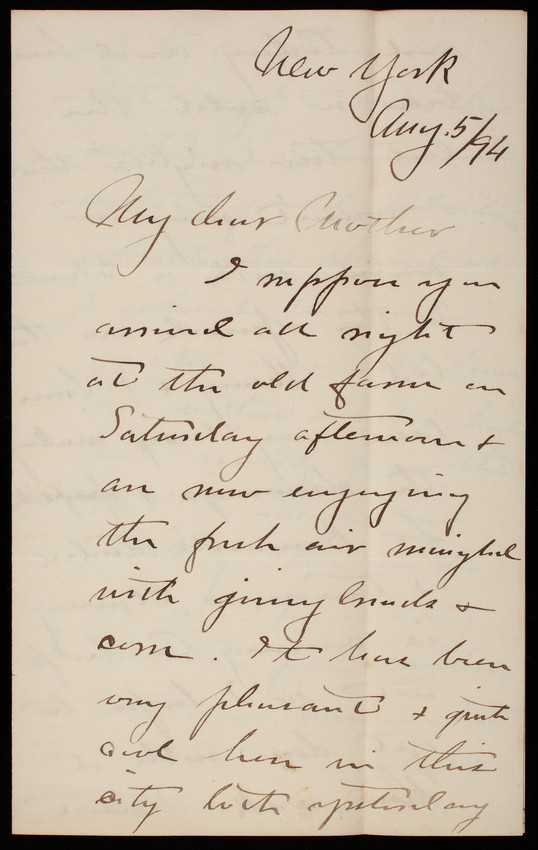 New York
Aug. 5/94
My dear Mother
I suppose you
arrived all right
at the old farm on
Saturday afternoon &
are now enjoying
the fresh air mingled
with &
corn. It has been
very pleasant & quite
cool here in this
city both yesterday